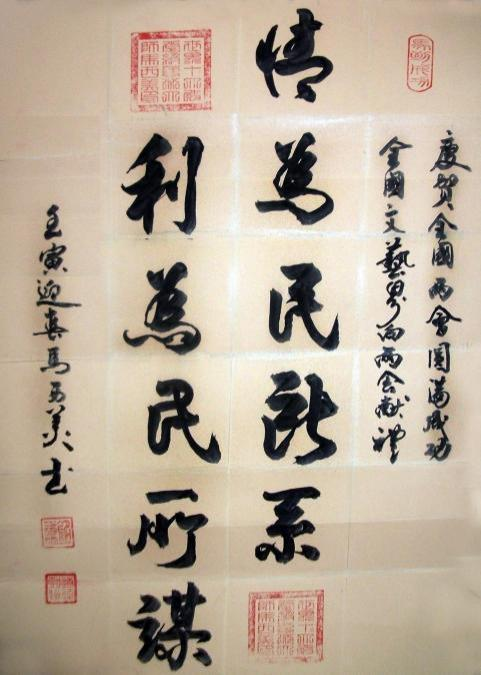 慶賀全國兩會圓滿成功
全國文藝界向兩会献禮
情為民所系
利為民所謀
壬寅迎春馬西美书